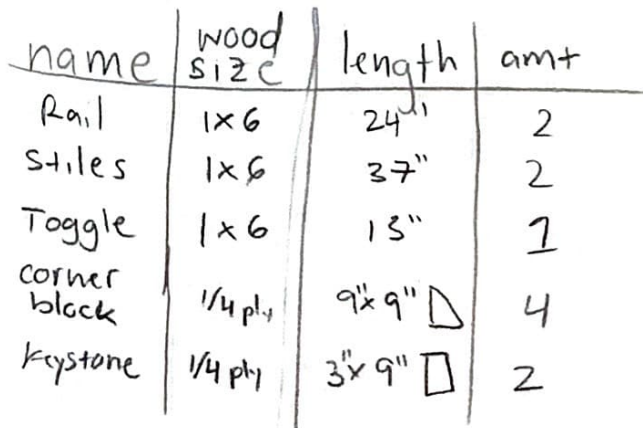 name wood size length amt
Rail 1x6 24" 2
Stiles 1x6 37" 2
Toggle 1x6 13" 1
corner block 1/4 ply 9"x 9" 4
Keystone 1/4 ply 3"x 9" 2